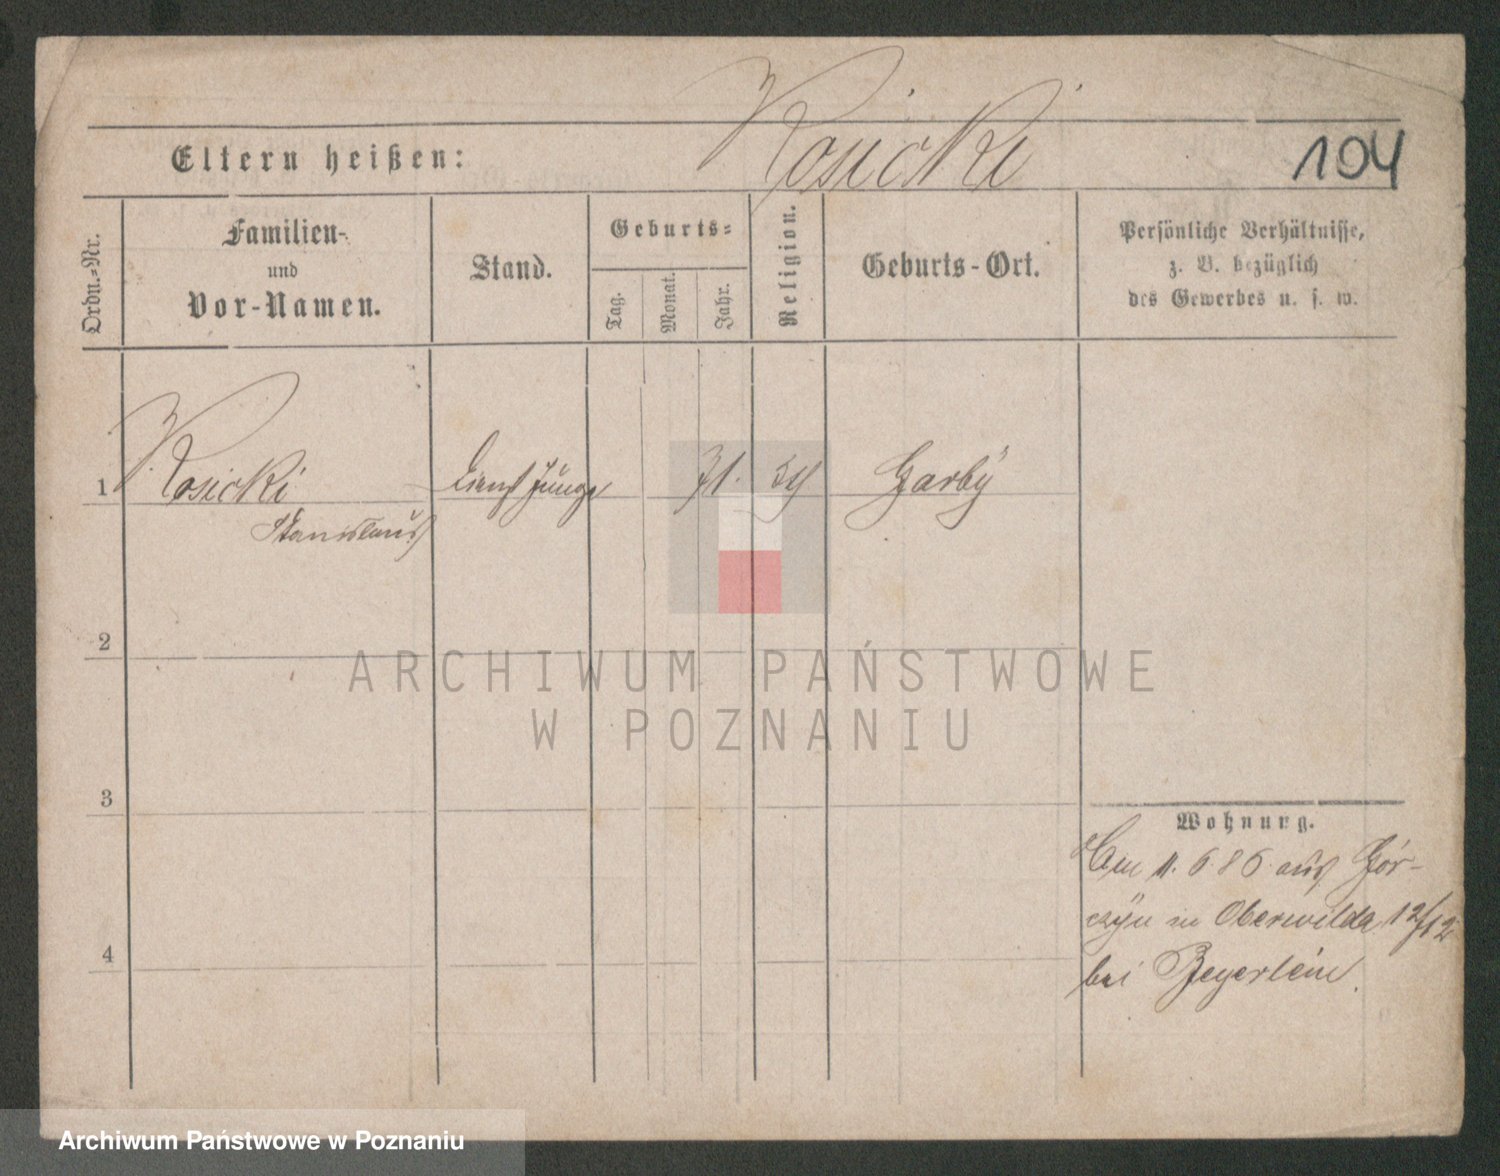 Kosicki
Eltern heißen:
104
Ordn.=Nr.
Familien-
und
Vor-Namen.
Stand.
Geburts=
Tag.
Monat.
Jahr.
Religion.
Geburts-Ort.
Persönliche Verhältnisse,
z. B. bezüglich
des Gewerbes u. s. w.
1 Kosicki Dienstjunge 71. Garby
Stanislaus
2
ARCHIWUM PAŃSTWOWE
W POZNANIU
3
Wohnung.
Am 11.6.86. aus Gór-
czyn in Oberwilda 12/12
4
bei Beyerlein.
Archiwum Państwowe w Poznaniu